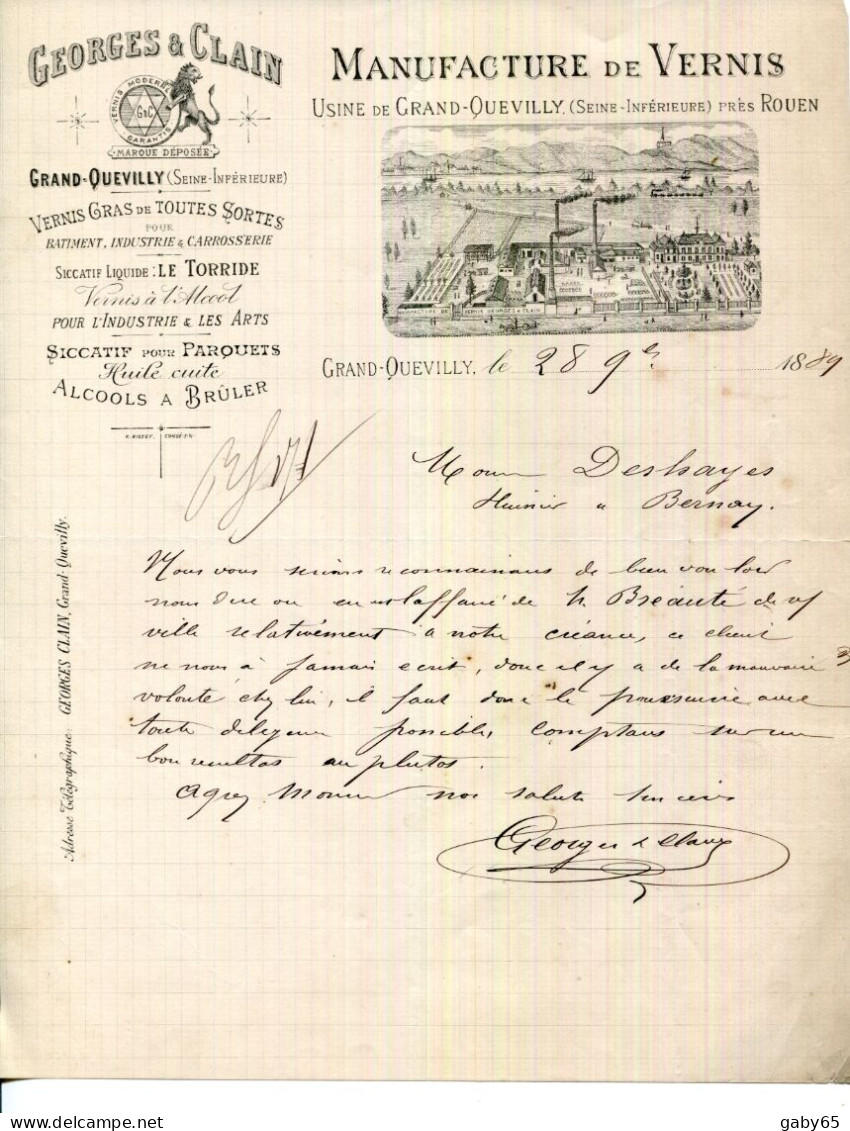 GEORGES & CLAIN
VERNIS MODERNE
G&C
GARANTIS
MARQUE DÉPOSÉE
GRAND-QUEVILLY (SEINE-INFÉRIEURE)
VERNIS GRAS DE TOUTES SORTES
POUR
BATIMENT, INDUSTRIE & CARROSSERIE
SICCATIF LIQUIDE: LE TORRIDE
Vernis à l'Alcool
POUR L'INDUSTRIE & LES ARTS
SICCATIF POUR PARQUETS
Huile cuite
ALCOOLS A BRÛLER
MANUFACTURE DE VERNIS
USINE DE GRAND-QUEVILLY, (SEINE-INFÉRIEURE) PRÈS ROUEN
MANUFACTURE DE VERNIS GEORGES & CLAIN
GRAND-QUEVILLY, le 28 9e 1889
Deshayes
Huissier a Bernay.
Nous vous serions reconnaissans de bien vouloir
nous dire ou en est l'affaire de M. Bréauté de vf
ville relativement a notre créance, ce client
ne nous à jamais ecrit, donc il y a de la mauvaise
volonté chez lui, il faut donc le poursuivre avec
toute diligence possible, comptans sur un
bon resultas au plutos.
Agreez Monsieur nos saluts sinceres
Georges & Clain
Adresse Télégraphique: GEORGES CLAIN, Grand-Quevilly.
gaby65